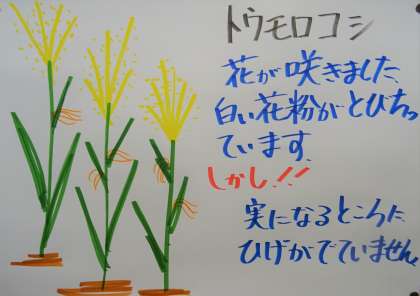 トウモロコシ
花が咲きました、
白い花粉がとびちっ
ています。
しかし!!
実になるところに
ひげがでていません。